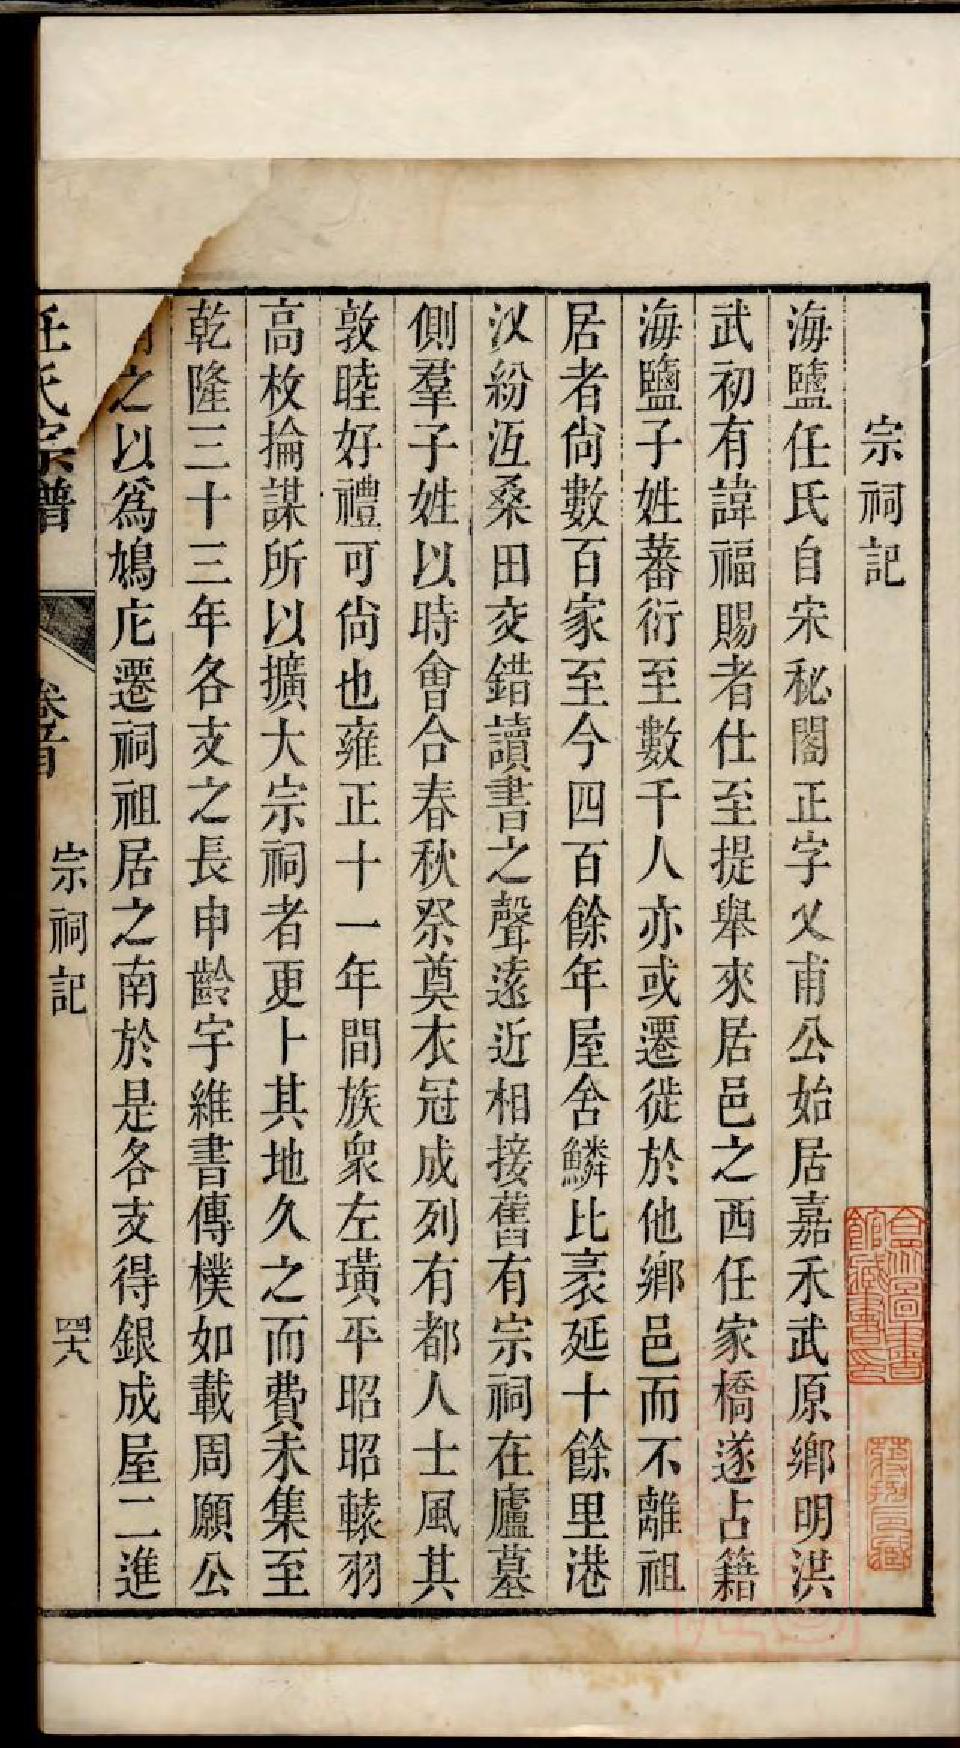 宗祠記
海鹽任氏自宋秘閣正字乂甫公始居嘉禾武原鄉明洪
武初有諱福賜者仕至提舉來居邑之西任家橋遂占籍
海鹽子姓蕃衍至數千人亦或遷徙於他鄉邑而不離祖
居者尙數百家至今四百餘年屋舍鱗比袤延十餘里港
汊紛沍桑田交錯讀書之聲遠近相接舊有宗祠在廬墓
側羣子姓以時會合春秋祭奠衣冠成列有都人士風其
敦睦好禮可尙也雍正十一年間族衆左璜平昭昭轅羽
高枚掄謀所以擴大宗祠者更卜其地久之而費未集至
乾隆三十三年各支之長申齡宇維書傳樸如載周願公
之以爲鳩庀遷祠祖居之南於是各支得銀成屋二進
任氏宗譜 卷首 宗祠記 四六